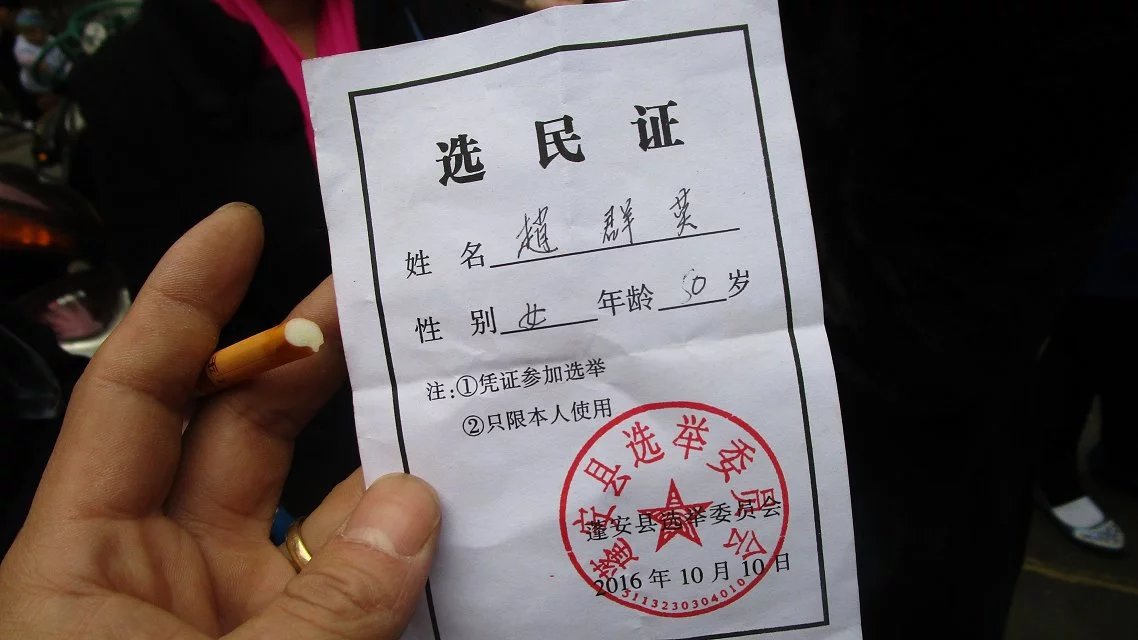 选民证
姓名 趙群英
性别 女 年龄 50 岁
注:①凭证参加选举
②只限本人使用
蓬安县选举委员会
蓬安县选举委员会
2016年10月10日